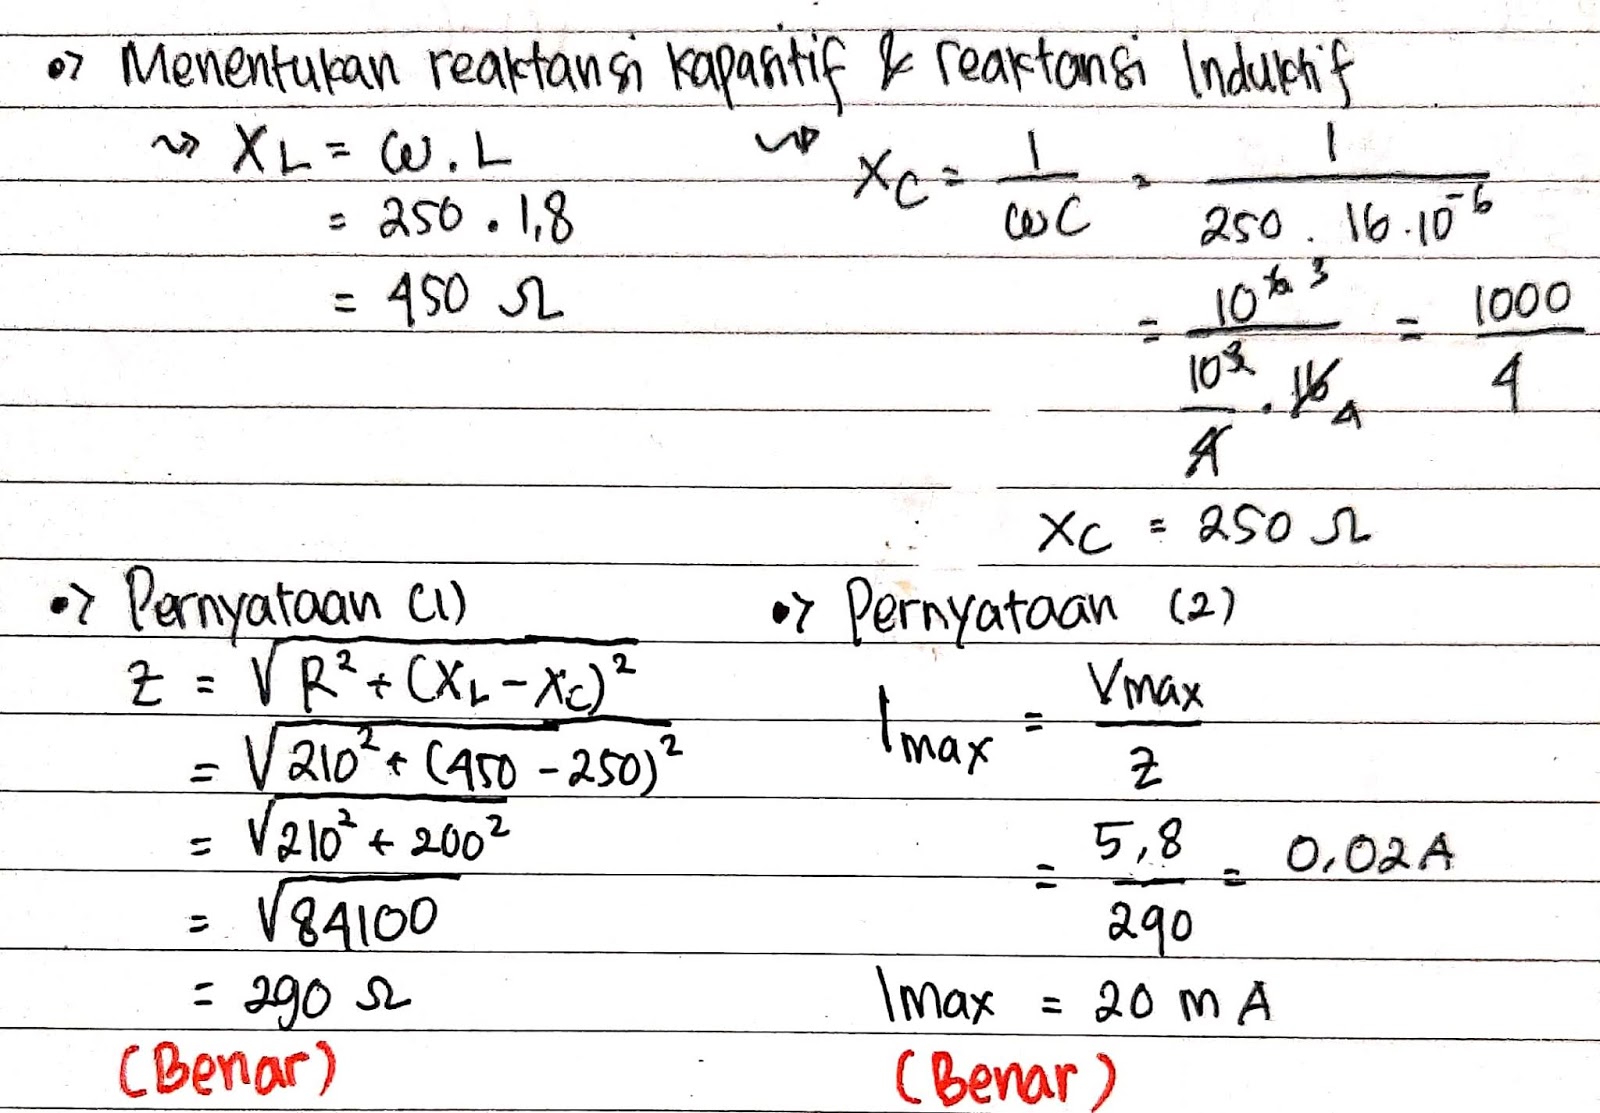 •> Menentukan reaktansi kapasitif & reaktansi Induktif
~> XL = ω . L
= 250 . 1,8
= 450 Ω
~> XC = 1/ωC = 1/250 . 16 . 10⁻⁶
= 10⁶ ³/10³/4 . 16 4 = 1000/4
XC = 250 Ω
•> Pernyataan (1)
Z = √R² + (XL - XC)²
= √210² + (450 - 250)²
= √210² + 200²
= √84100
= 290 Ω
(Benar)
•> Pernyataan (2)
Imax = Vmax/Z
= 5,8/290 = 0,02 A
Imax = 20 mA
(Benar)